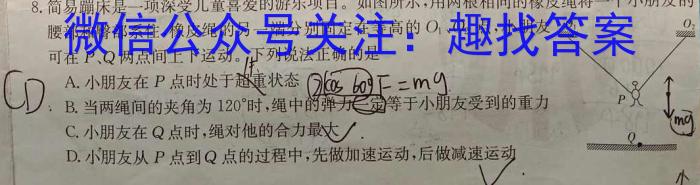 8.简易蹦床是一项深受儿童喜爱的游乐项目。如图所示,用两根相同的橡皮绳将一个小朋友的
微信公众号关注：趣找答案
可在P、Q两点间上下运动。下列说法正确的是
A.小朋友在P点时处于超重状态
2cos60°F=mg
CD
B.当两绳间的夹角为120°时,绳中的弹力一定等于小朋友受到的重力
C.小朋友在Q点时,绳对他的合力最大
D.小朋友从P点到Q点的过程中,先做加速运动,后做减速运动
O₁
P
mg
Q